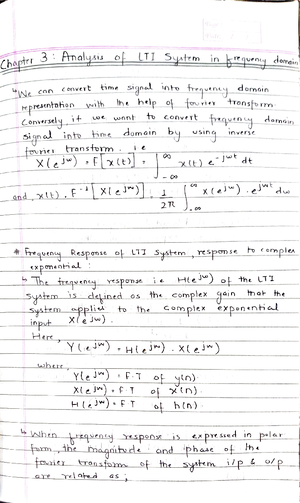 Chapter 3 : Analysis of LTI System in frequency domain
↳ We can convert time signal into frequency domain
representation with the help of fourier transform.
Conversely if we want to convert frequency domain
signal into time domain by using inverse
fourier transform. i.e
X(e^jw) = F[x(t)] = ∫_-∞^∞ x(t) e^-jwt dt
and, x(t) = F^-1 [X(e^jw)] = 1/2π ∫_-∞^∞ X(e^jw) . e^jwt dw
* Frequency Response of LTI System, response to complex
exponential :
↳ The frequency response i.e H(e^jw) of the LTI
system is defined as the complex gain that the
system applies to the complex exponential
input X(e^jw).
Here,
Y(e^jw) = H(e^jw) . X(e^jw)
where,
Y(e^jw) = F.T of y(n).
X(e^jw) = F.T of x(n).
H(e^jw) = F.T of h(n).
↳ When frequency response is expressed in polar
form, the magnitude and phase of the
fourier transform of the system i/p & o/p
are related as ;